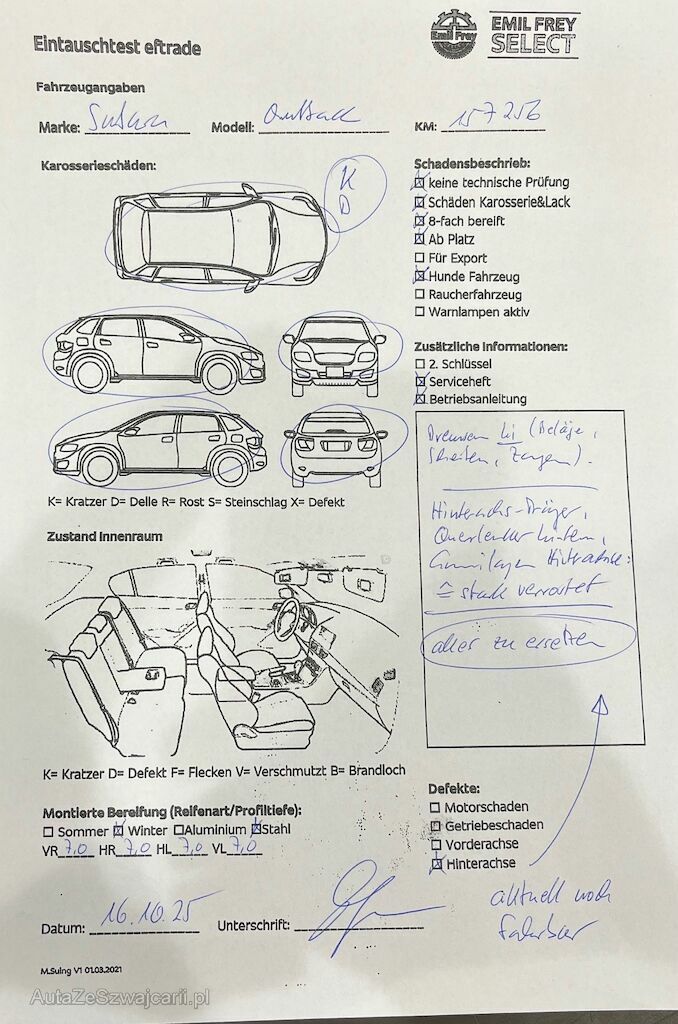 Eintauschtest eftrade
Emil Frey
EMIL FREY
SELECT
Fahrzeugangaben
Marke: Subaru Modell: Outback KM: 157256
Karosserieschäden:
K
D
Schadensbeschrieb:
keine technische Prüfung
Schäden Karosserie&Lack
8-fach bereift
Ab Platz
Für Export
Hunde Fahrzeug
Raucherfahrzeug
Warnlampen aktiv
Zusätzliche Informationen:
2. Schlüssel
Serviceheft
Betriebsanleitung
K= Kratzer D= Delle R= Rost S= Steinschlag X= Defekt
Bremsen hi (Beläge,
Scheiben, Zangen).
Hinterachs-Träger,
Querlenker hinten,
Gummilager Hinterachse:
= stark verrostet
alles zu ersetzen
Zustand Innenraum
K= Kratzer D= Defekt F= Flecken V= Verschmutzt B= Brandloch
Montierte Bereifung (Reifenart/Profiltiefe):
Sommer Winter Aluminium Stahl
VR 7,0 HR 7,0 HL 7,0 VL 7,0
Defekte:
Motorschaden
Getriebeschaden
Vorderachse
Hinterachse
aktuell noch
fahrbar
Datum: 16.10.25 Unterschrift:
M.Suing V1 01.03.2021
AutaZeSzwajcarii.pl